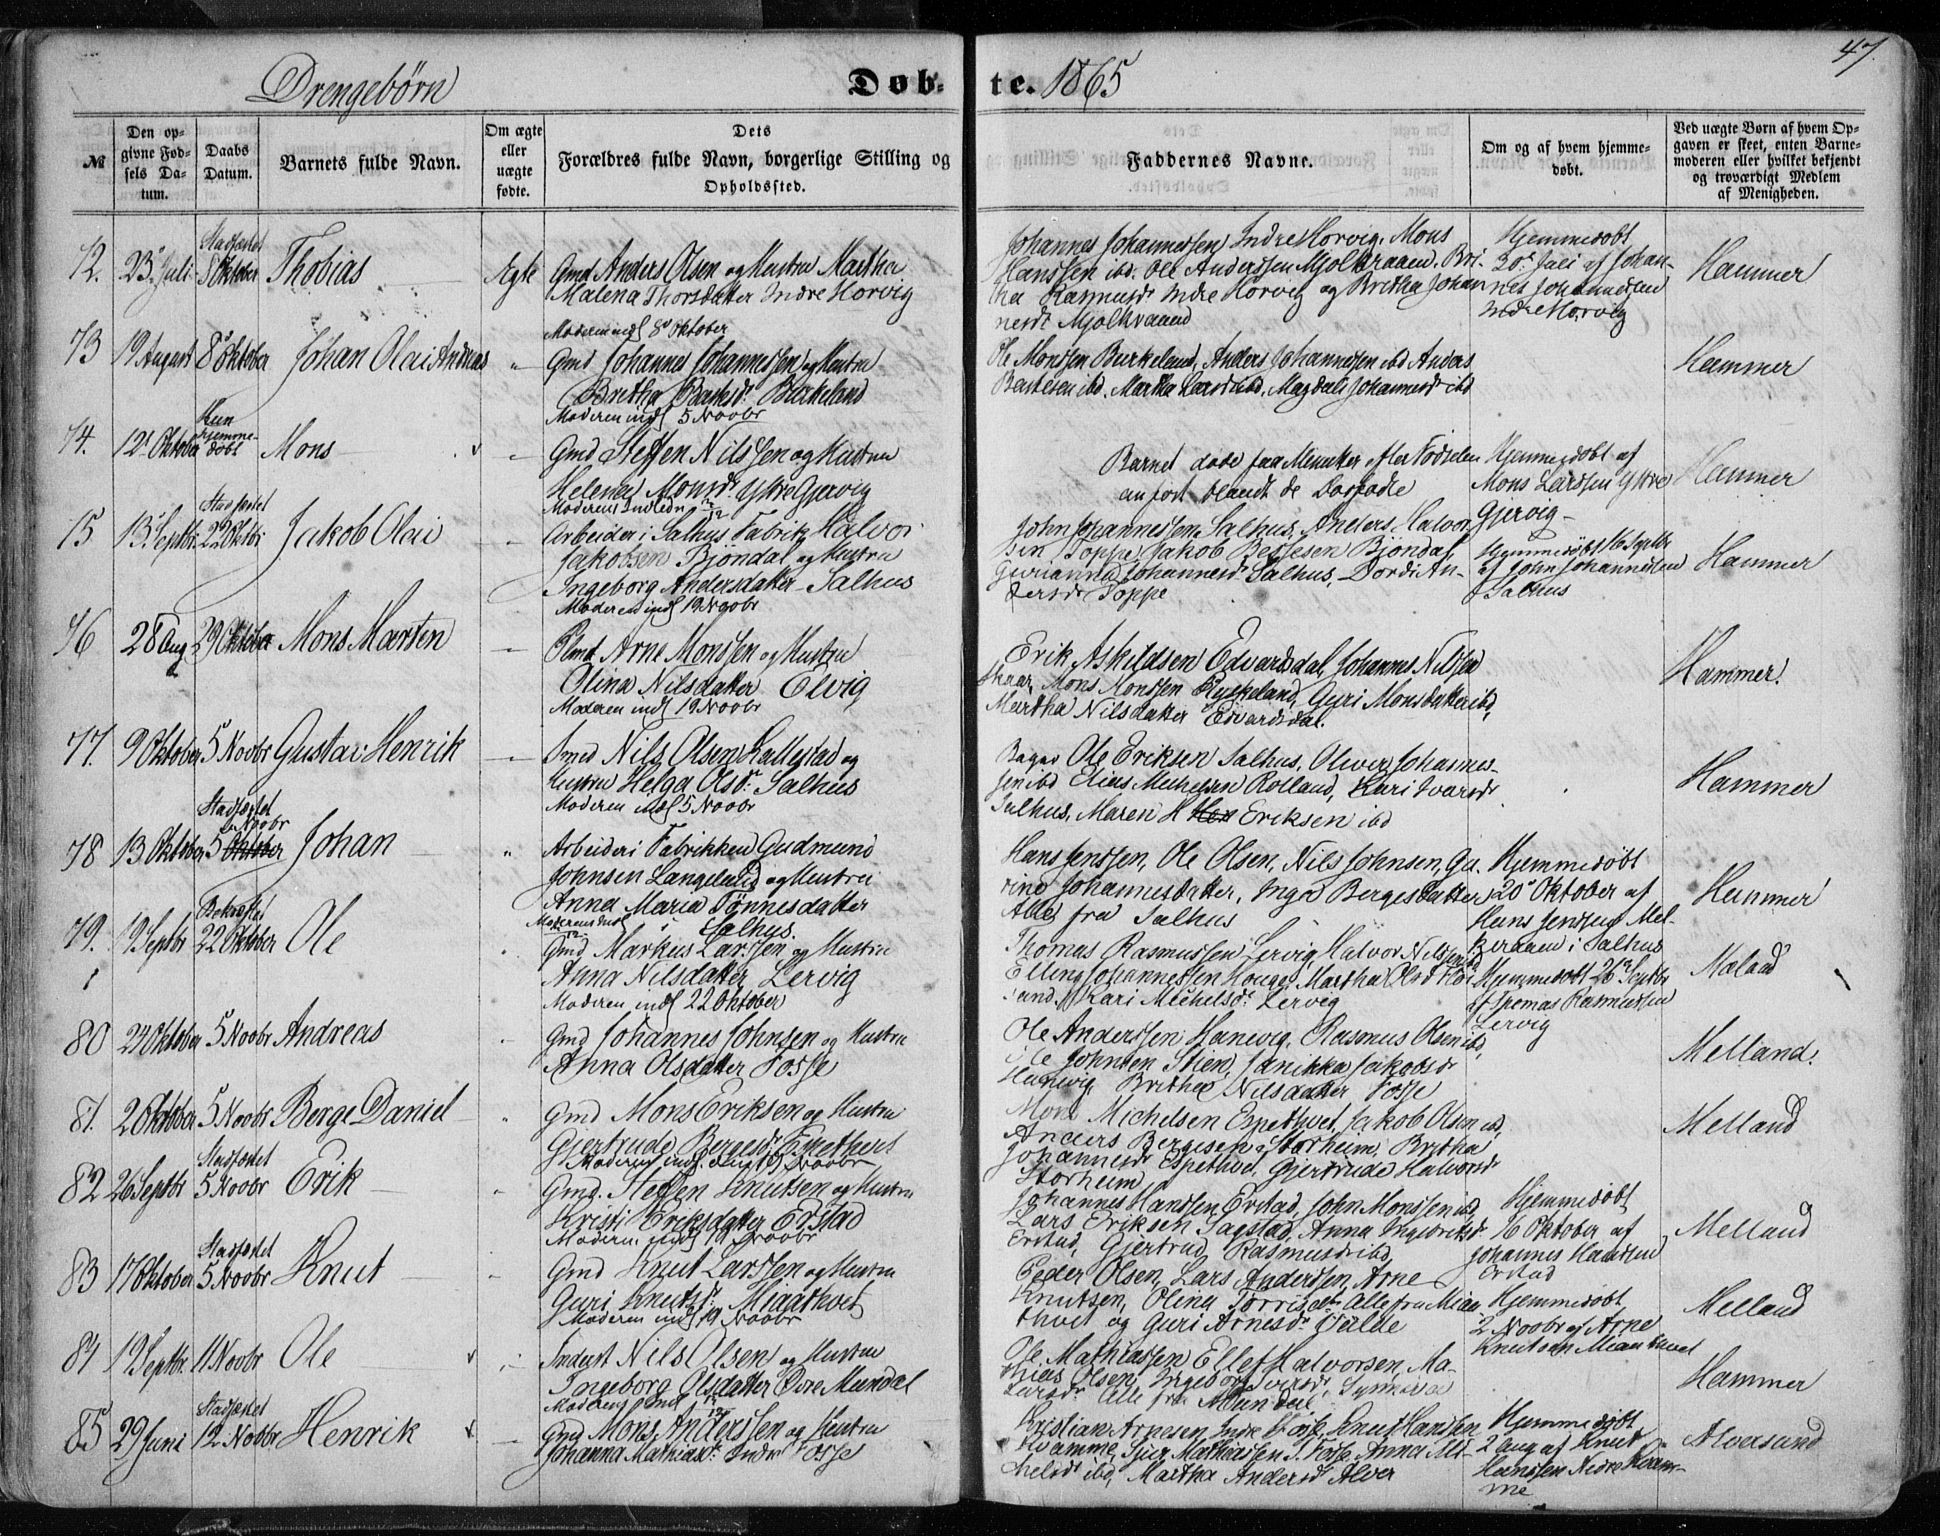 47.
Drengebørn
Døb-
te. 1865
№
Den op-
givne Fød-
sels Da-
tum.
Daabs
Datum.
Barnets fulde Navn.
Om ægte
eller
uægte
fødte.
Dets
Forældres fulde Navn, borgerlige Stilling og
Opholdssted.
Faddernes Navne.
Om og af hvem hjemme-
døbt.
Ved uægte Børn af hvem Op-
gaven er skeet, enten Barne-
moderen eller hvilket bekjendt
og troværdigt Medlem
af Menigheden.
72. 23 Juli Stadfæstet 8 Oktober Thobias Ægte
Gmd Anders Olsen og Hustru Martha
Malena Thorsdatter Indre Horvig
Moderen indl 8 Oktober
Johannes Johannessen Indre Horvig, Mons
Hanssen ibd. Ole Anderssen Mjølkraaen, Bri-
tha Rasmusdr Indre Horvig og Britha Johan
nesdr Mjølkraaen
Hjemmedøbt
30 Juli af Johan-
nes Johannessen
Indre Horvig
Hammer
73 19 August 8 Oktober Johan Olai Andreas "
Gmd Johannes Johannessen og Hustru
Britha Bertelsdr Birkeland
Moderen indl 5 Novbr
Ole Monssen Birkeland, Anders Johannessen ibd Anders
Bertelsen ibd. Martha Larsdr ibd. Magdali Johannesdr ibd
Hammer
74. 12 Oktober Kun hjemme-
døbt Mons "
Gmd Steffen Nilssen og Hustru
Helena Monsdr Yttre Gjervig
Barnet døde faa Minutter efter Fødselen
anført blandt de Dødfødte
Hjemmedøbt af
Mons Larssen Yttre
Gjervig
Hammer
75 13 Septbr Stadfæstet 22 Oktbr Jakob Olai
Arbeider i Salhus Fabrik Halvor
Jakobsen Bjøndal og Hustru
Ingeborg Andersdatter Salhus
Moderen indl 19 Novbr
John Johannessen Salhus, Anders Halvor
sen Toppe, Jakob Bessesen Bjøndal
Gurianna Johannesdr Salhus, Dordi An-
dersdr Toppe
Hjemmedøbt 16 Septbr
af John Johannessen
Salhus
Hammer
76 28 Aug 29 Oktober Mons Marten
Arne Monssen og Hustru
Olina Nilsdatter Elvig
Moderen indl 19 Novbr
Erik Askildsen Edvardsdal, Johannes Nilssen
Mons Monssen Ryskeland, Guri Monsdatter ibd,
Martha Nilsdatter Edvardsdal.
Hammer.
77. 9 Oktober 5 Novbr Gustav Henrik
Smed Nils Olsen Hallestad og
Hustru Helga Olsdr Salhus
Moderen indl 5 Novbr
Bager Ole Eriksen Salhus, Oliver Johannes-
sen ibd Elias Michelsen Rolland, Kari Ivarsdr
Salhus, Maren H Eriksen ibd
Hammer
78 13 Oktober Stadfæstet 5 Novbr Johan "
Arbeider i Fabrikken Gudmund
Johnsen Langelid og Hustru
Anna Maria Tønnesdatter
Salhus.
Hans Jenssen, Ole Olsen, Nils Johnsen, Gu-
rine Johannesdatter, Inga Bergesdatter
Alle fra Salhus
Hjemmedøbt
20 Oktober af
Hans Jenssen Mel-
keraaen i Salhus
Hammer
79. 19 Septbr Bekræftet 22 Oktober Ole
Gmd Markus Larssen og Hustru
Anna Nilsdatter Lervig
Moderen indl 22 Oktober
Thomas Rasmussen Lervig, Halvor Nilssen ibd
Elling Johannessen Houge, Martha Olsdr
Kari Michelsdr Lervig
Hjemmedøbt 26 Septbr
af Thomas Rasmussen
Lervig
Mæland
80 24 Oktober 5 Novbr Andreas
Gmd Johannes Johnsen og Hustru
Anna Olsdatter Fosse
Ole Anderssen Hanevig, Rasmus Olsen ibd,
Ole Johnsen Stien, Janikka Jakobsdr
Hanevig Britha Nilsdatter Fosse
Melland.
81. 2 Oktober 5 Novbr Berge Daniel
Gmd Mons Eriksen og Hustru
Gjertrude Bergesdr Espethvet
Mons Michelsen Espethvet, Jakob Olsen ibd,
Anders Bergesen Storheim, Britha
Johannesdr Espethvet, Gjertrude Halvorsdr
Storheim
Melland
82 26 Septbr Stadfæstet 5 Novbr Erik
Gmd. Steffen Knutsen og Hustru
Kristi Eriksdatter Erstad
Moderen indl 19 Novbr
Johannes Hanssen Erstad, John Monssen ibd,
Lars Eriksen Sagstad, Anna Ingebrictsdr
Erstad, Gjertrud Rasmusdr ibd
Hjemmedøbt
16 Oktober af
Johannes Hanssen
Erstad
Melland
83 17 Oktober Stadfæstet 5 Novbr Knut
Gmd Knut Larssen og Hustru
Guri Knutsdr Miaathvet
Moderen indl 19 Novbr
Peder Olsen, Lars Anderssen, Arne
Knutsen, Olina Torrisdtr Alle fra Miaa
thvet og Guri Arnesdr Valde
Hjemmedøbt
2 Novbr af Arne
Knutsen Miaathvet
Melland
84 19 Septbr 11 Novbr Ole
Inderst Nils Olsen og Hustru
Ingeborg Olsdatter Øvre Mundal
Ole Mathiassen Ellef Halvorsen, Ma-
thias Olsen, Ingeborg Iversdr, Synneva
Larsdr Alle fra Mundal
Hammer
85 29 Juni Stadfæstet 12 Novbr Henrik
Gmd Mons Anderssen og Hustru
Johanna Mathiasdr Indre Fosse
Kristian Arnesen, Indre Fosse, Knut Hanssen
Kvamme, Sjur Mathiassen I. Fosse Anna Mi-
chelsdr ibd, Martha Andersdr Alver
Hjemmedøbt
2 Aug af Knut
Hanssen Nedre Kvam-
me
Alversund